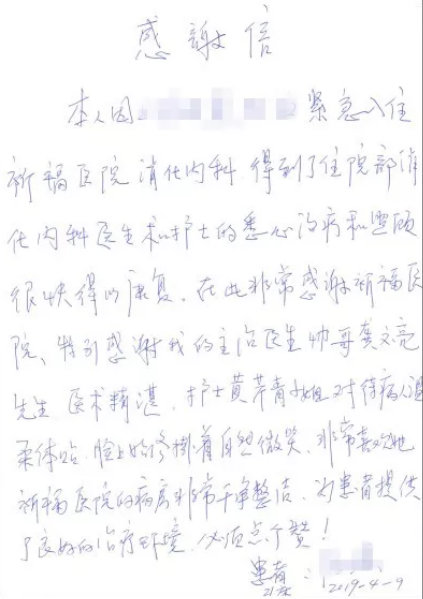 感謝信
本人因 紧急入住
祈福医院消化内科 得到了住院部消
化内科医生和护士的悉心治病和照顾
很快得以康复。在此非常感谢祈福医
院、特别感谢我的主治医生帅哥龚文亮
先生 医术精湛，护士黄芹青小姐对待病人温
柔体贴，脸上始终掛着自然微笑，非常喜欢她
祈福医院的病房非常干净整洁，为患者提供
了良好的治疗环境，必须点个赞！
患者：
2019-4-9